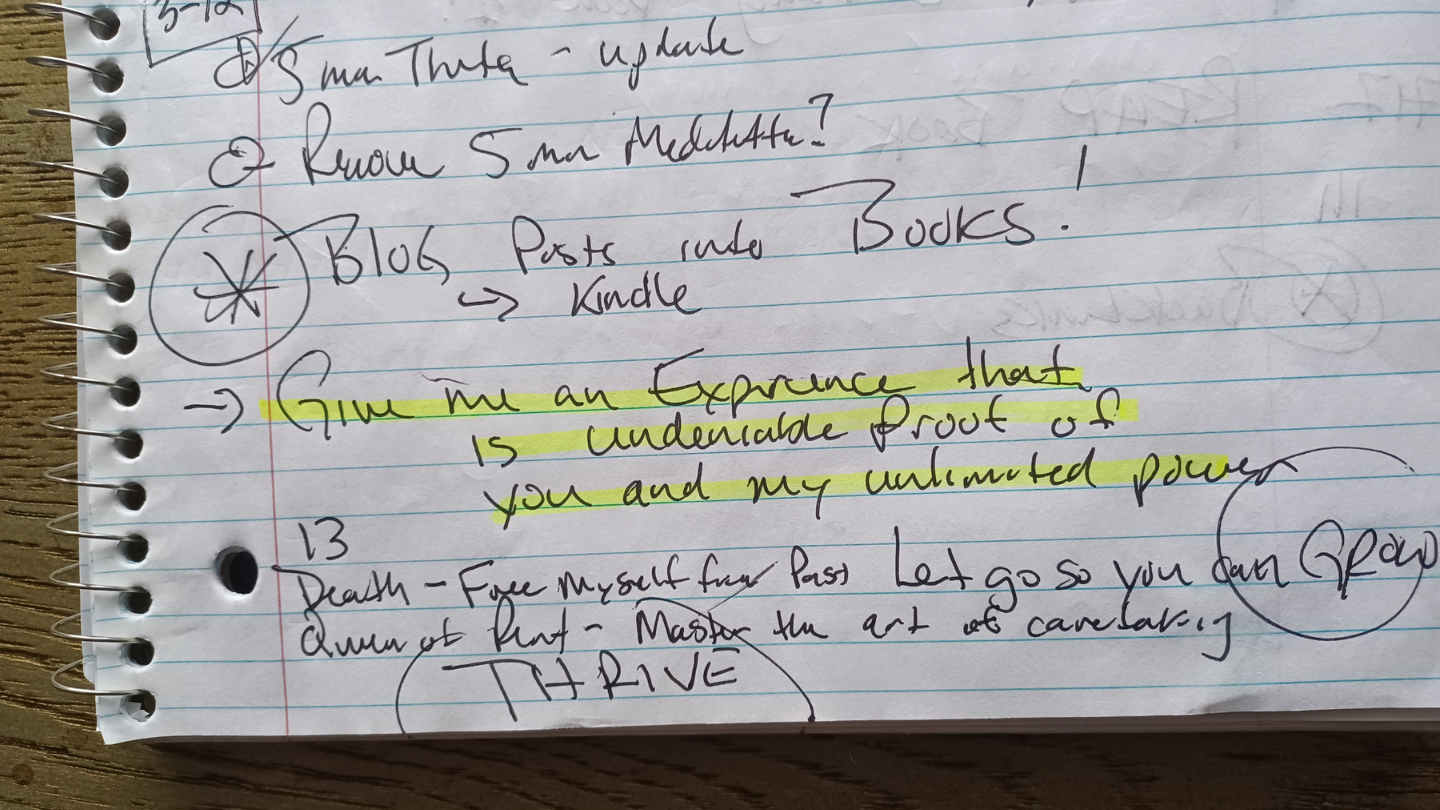 3-12
5 min Theta - update
Remove 5 min Meditation?
Blog Posts into Books!
→ Kindle
→ Give me an Experience that
is undeniable proof of
you and my unlimited power
13
Death - Free Myself from Past Let go so you can GROW
Queen of Pent - Master the art of caretaking
THRIVE